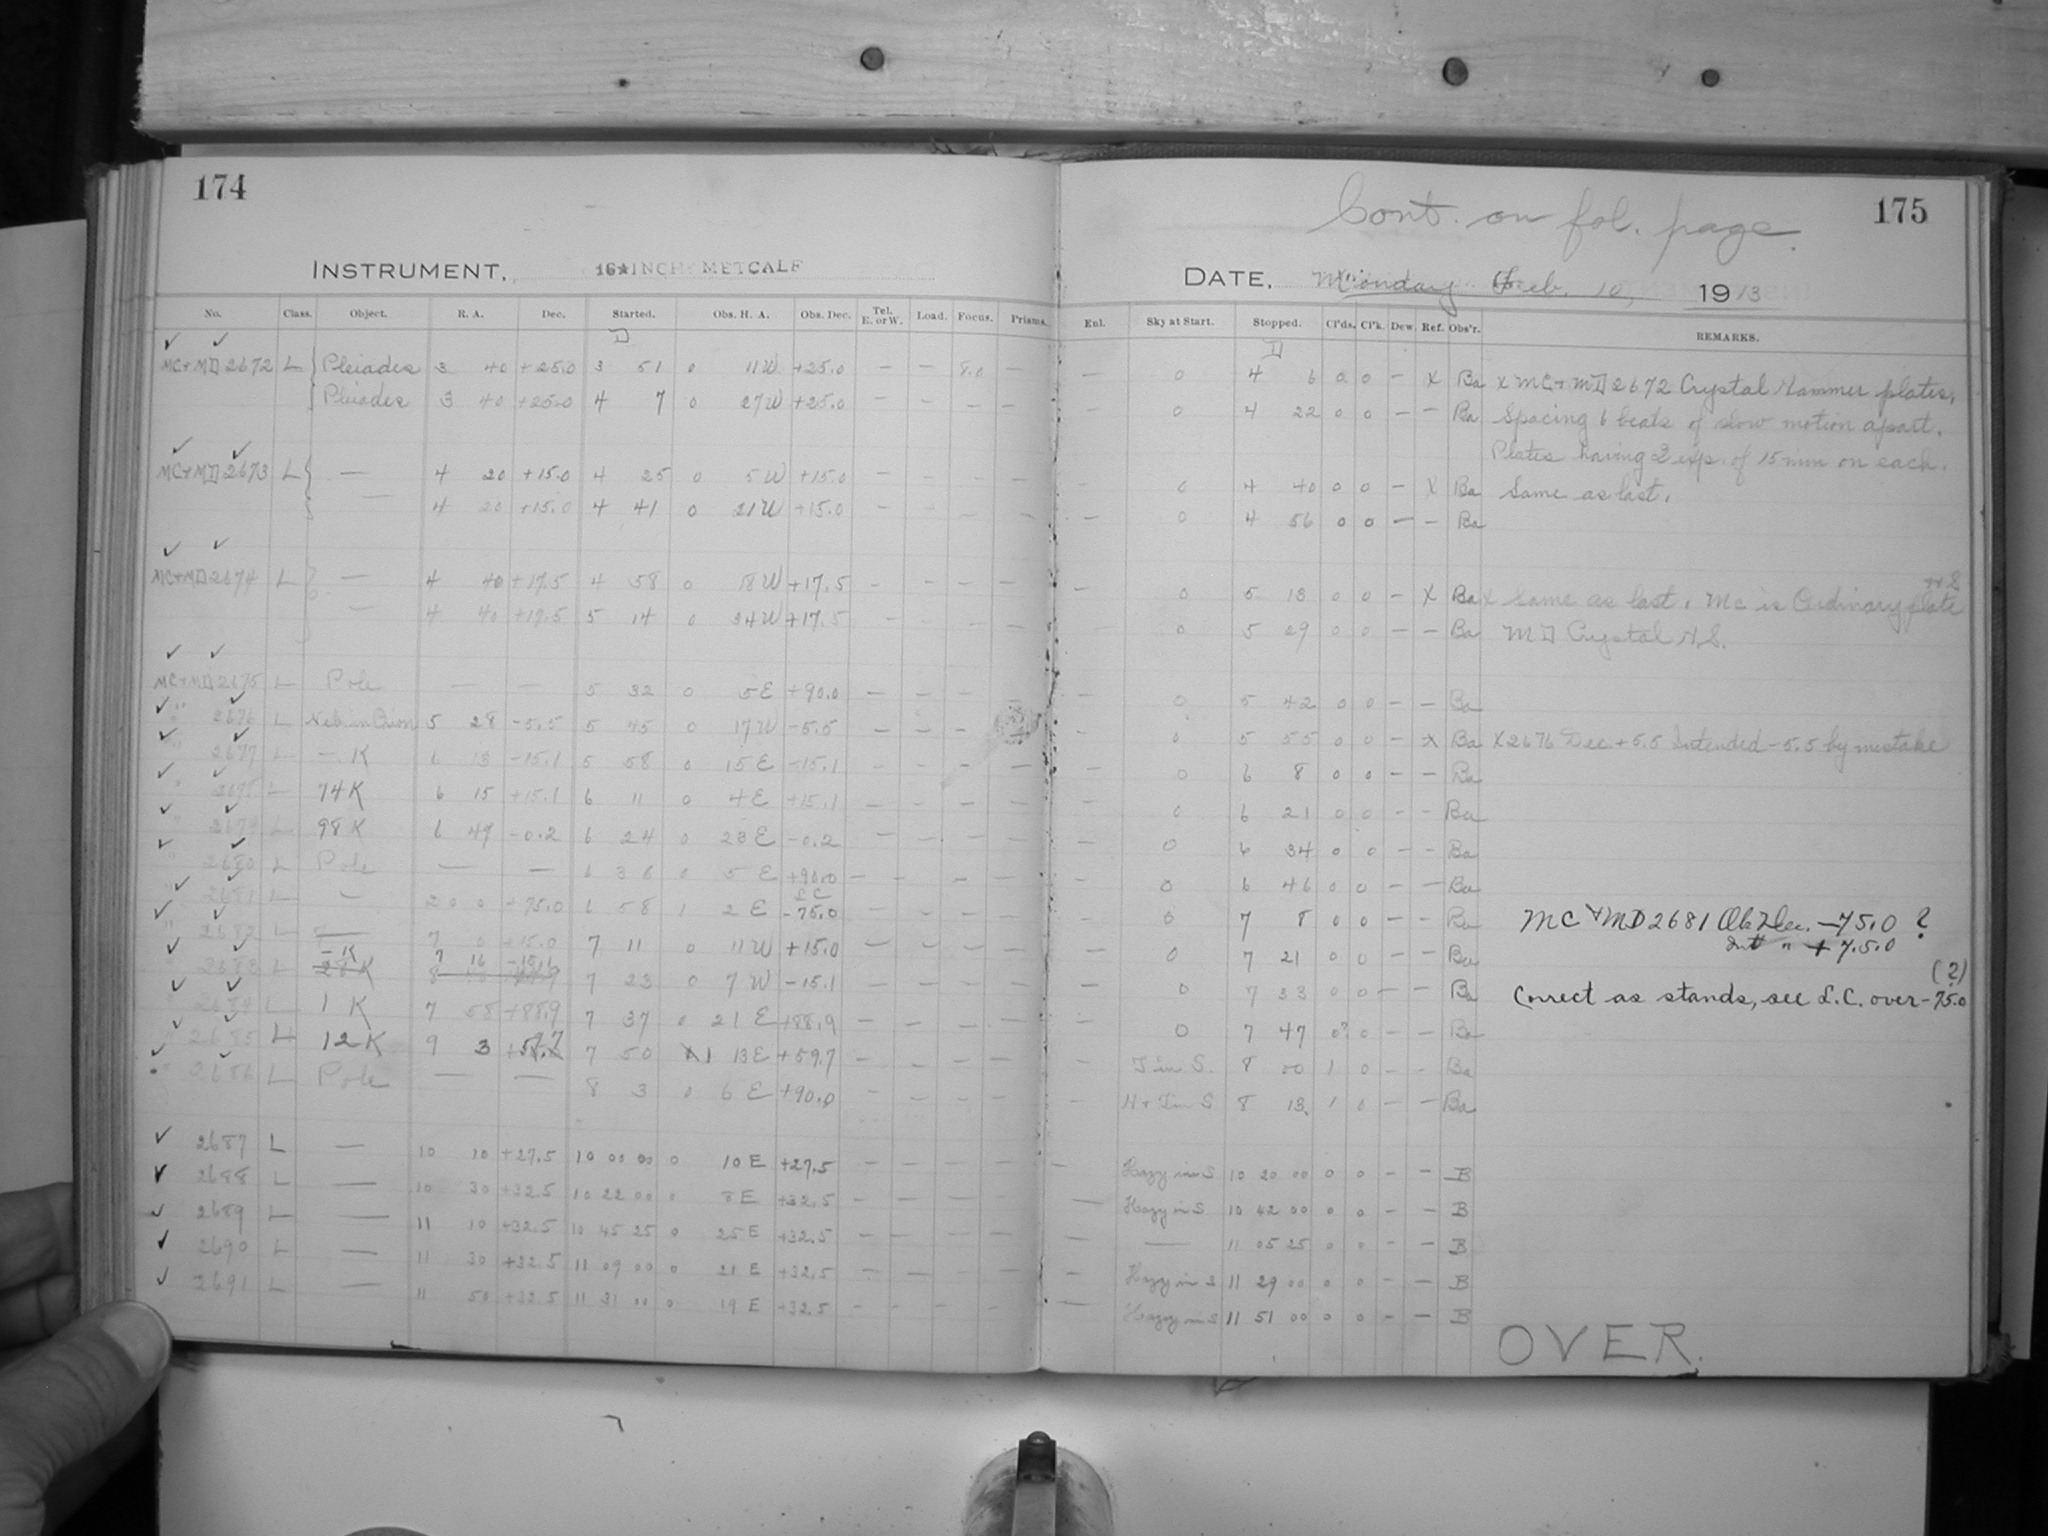 174
INSTRUMENT, 16★INCH METCALF
No. Class. Object. R. A. Dec. Started. Obs. H. A. Obs. Dec. Tel. E. or W. Load. Focus. Prisms.
D
MC+MD 2672 L Pleiades 3 40 +25.0 3 51 0 11W +25.0 — — 8.0 —
Pleiades 3 40 +25.0 4 7 0 27W +25.0 — — — —
MC+MD 2673 L — 4 20 +15.0 4 25 0 5W +15.0 —
— 4 20 +15.0 4 41 0 21W +15.0 — — — —
MC+MD 2674 L — 4 40 +17.5 4 58 0 18W +17.5 — — — —
— 4 40 +17.5 5 14 0 34W +17.5 — — — —
MC+MD 2675 L Pole — — 5 32 0 5E +90.0 — — — —
" 2676 L Neb. in Orion 5 28 -5.5 5 45 0 17W -5.5 — — — —
" 2677 L —. K 6 13 -15.1 5 58 0 15E -15.1 — — — —
" 2678 L 74K 6 15 +15.1 6 11 0 4E +15.1 — — — —
" 2679 L 98K 6 47 -0.2 6 24 0 23E -0.2 — — — —
" 2680 L Pole — — 6 36 0 5E +90.0 — — — —
LC
" 2681 L — 20 0 +75.0 6 58 1 2E -75.0 — — — —
" 2682 L 7 0 +15.0 7 11 0 11W +15.0 — — — —
— K 7 16 -15.1
" 2683 L 28K 8 7 23 0 7W -15.1 — — — —
" 2684 L 1K 7 58 +88.9 7 37 0 21E +88.9 — — — —
" 2685 L 12K 9 3 +59.7 7 50 1 13E +59.7 — — — —
" 2686 L Pole — — 8 3 0 6E +90.0 — — — —
2687 L — 10 10 +27.5 10 00 00 0 10E +27.5 — — — —
2688 L — 10 30 +32.5 10 22 00 0 8E +32.5 — — — —
2689 L — 11 10 +32.5 10 45 25 0 25E +32.5 — — — —
2690 L — 11 30 +32.5 11 09 00 0 21E +32.5 — — — —
2691 L — 11 50 +32.5 11 31 00 0 19E +32.5 — — — —
Cont. on fol. page.
175
DATE, Monday Feb. 10, 1913
Enl. Sky at Start. Stopped. Cl'ds. Cl'k. Dew. Ref. Obs'r. REMARKS.
D
— 0 4 6 0 0 — X Ba X MC+MD 2672 Crystal Hammer plates,
— 0 4 22 0 0 — — Ba Spacing 6 beats of slow motion apart.
Plates having 2 exp. of 15 min on each.
— 0 4 40 0 0 — X Ba Same as last.
— 0 4 56 0 0 — — Ba
H S
— 0 5 13 0 0 — X Ba X Same as last. MC is Ordinary plate
0 5 29 0 0 — — Ba MD Crystal H.S.
0 5 42 0 0 — — Ba
— 0 5 55 0 0 — X Ba X 2676 Dec +5.5 Intended -5.5 by mistake
— 0 6 8 0 0 — — Ba
— 0 6 21 0 0 — — Ba
— 0 6 34 0 0 — — Ba
— 0 6 46 0 0 — — Ba
— 0 7 8 0 0 — — Ba MC+MD 2681 Ob Dec. -75.0 ?
Int " +75.0
— 0 7 21 0 0 — — Ba
(?)
— 0 7 33 0 0 — — Ba Correct as stands, see L.C. over -75.0
— 0 7 47 0? 0 — — Ba
— I in S. 8 00 1 0 — — Ba
— H + I in S 8 13 1 0 — — Ba
— Hazy in S 10 20 00 0 0 — — B
— Hazy in S 10 42 00 0 0 — — B
— — 11 05 25 0 0 — — B
— Hazy in S 11 29 00 0 0 — — B
— Hazy in S 11 51 00 0 0 — — B
OVER.